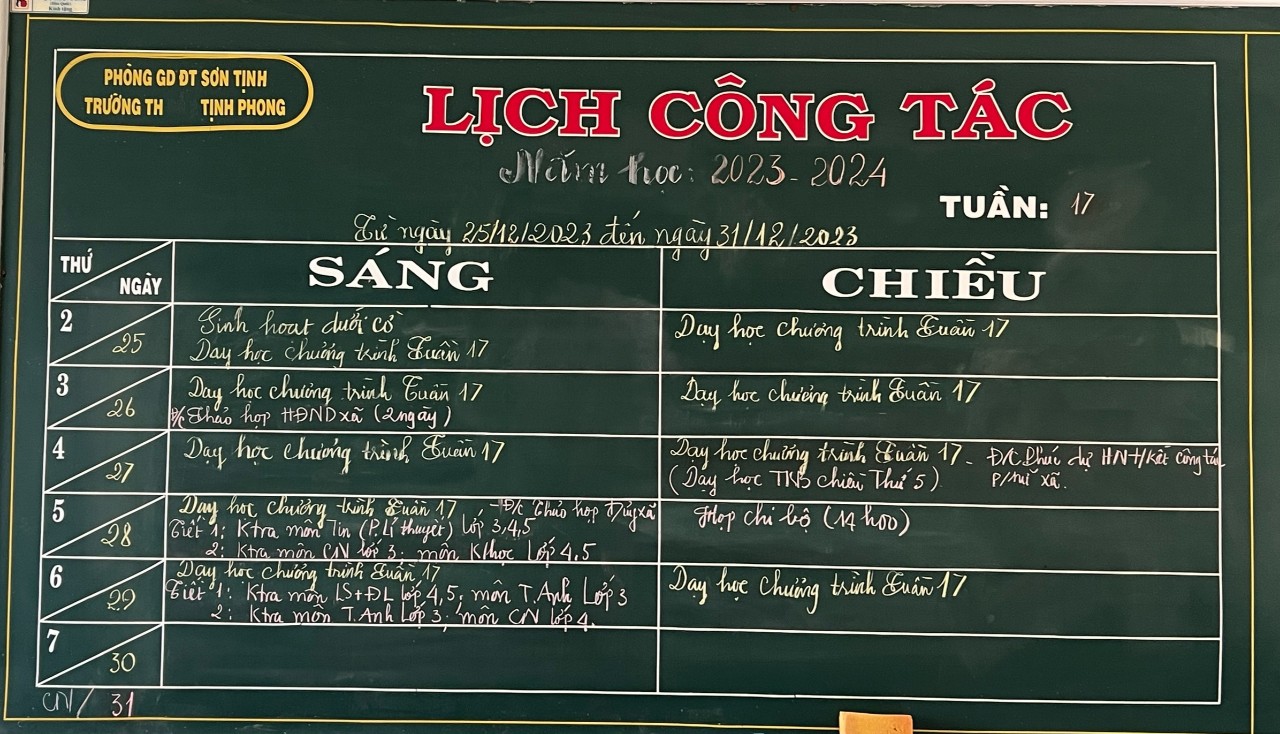 PHÒNG GD ĐT SƠN TỊNH
TRƯỜNG TH TỊNH PHONG
LỊCH CÔNG TÁC
Năm học: 2023-2024
TUẦN: 17
Từ ngày 25/12/2023 đến ngày 31/12/2023
THỨ
NGÀY
SÁNG
CHIỀU
2
25
Sinh hoạt dưới cờ
Dạy học chương trình Tuần 17
Dạy học chương trình Tuần 17
3
26
Dạy học chương trình Tuần 17
Đ/c Thảo họp HĐND xã (2 ngày)
Dạy học chương trình Tuần 17
4
27
Dạy học chương trình Tuần 17
Dạy học chương trình Tuần 17 - Đ/C dự HN t/kết công tác
(Dạy học TKB chiều Thứ 5) xã.
5
28
Dạy học chương trình Tuần 17 - Đ/c Thảo họp Đ/ủy xã
Tiết 1: Ktra môn Tin (P. Lí thuyết) lớp 3,4,5
2: Ktra môn CN lớp 3; môn Khọc Lớp 4,5
Họp chi bộ (14h00)
6
29
Dạy học chương trình Tuần 17
Tiết 1: Ktra môn LS+ĐL lớp 4,5; môn T.Anh Lớp 3
2: Ktra môn T.Anh Lớp 3; môn CN lớp 4.
Dạy học chương trình Tuần 17
7
30
CN/ 31